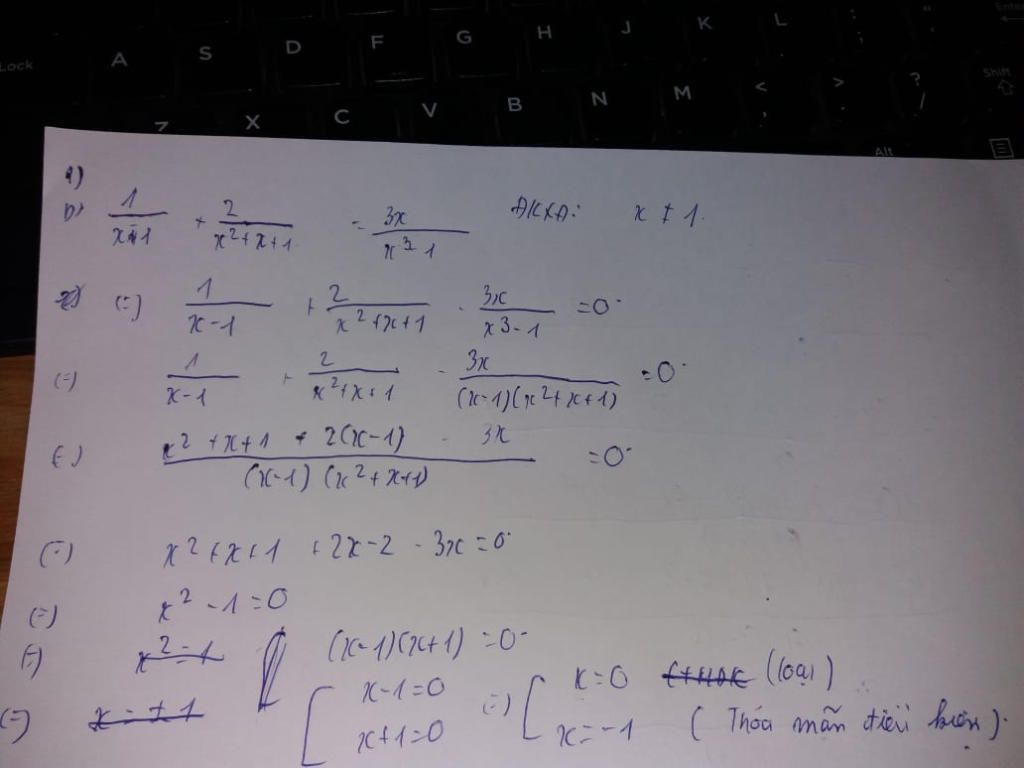 Lock A S D F G H J K L : ; " Enter
Z X C V B N M < > ? / Shift
Alt
1)
b) 1/(x-1) + 2/(x²+x+1) = 3x/(x³-1) ĐKXĐ: x ≠ 1.
(=) 1/(x-1) + 2/(x²+x+1) - 3x/(x³-1) = 0
(=) 1/(x-1) + 2/(x²+x+1) - 3x/((x-1)(x²+x+1)) = 0
(=) (x²+x+1 + 2(x-1) - 3x)/((x-1)(x²+x+1)) = 0
(=) x²+x+1 + 2x-2 - 3x = 0
(=) x² - 1 = 0
(=) x² = 1 (x-1)(x+1) = 0
(=) x = ±1 [ x-1=0 (=) [ x=0 (loại)
x+1=0 x=-1 (Thỏa mãn điều kiện).